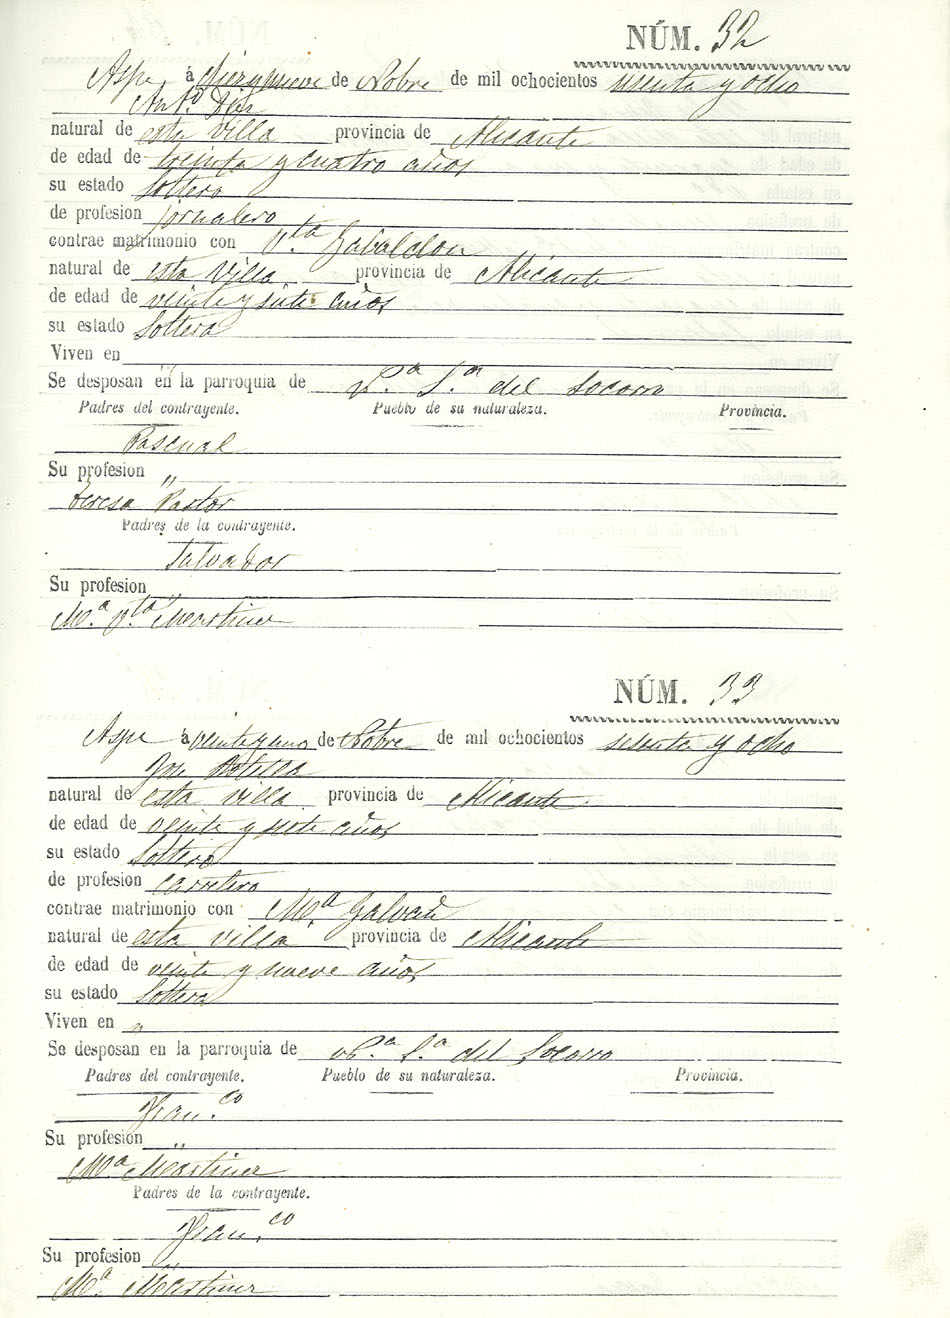 NÚM. 32
Aspe, á diez y nueve de Nobre de mil ochocientos sesenta y ocho
Anto. Díez
natural de esta villa provincia de Alicante
de edad de treinta y cuatro años
su estado Soltero
de profesion jornalero
contrae matrimonio con Vta Gabaldon
natural de esta villa provincia de Alicante
de edad de veinte y siete años
su estado Soltera
Viven en "
Se desposan en la parroquia de Na. Sa. del Socorro
Padres del contrayente. Pueblo de su naturaleza. Provincia.
Pascual
Su profesion "
Teresa Pastor
Padres de la contrayente.
Salvador
Su profesion "
Ma. Vta. Martinez
NÚM. 33
Aspe á veinte y uno de Nobre de mil ochocientos sesenta y ocho
Jose Botella
natural de esta villa provincia de Alicante
de edad de veinte y siete años
su estado Soltero
de profesion carretero
contrae matrimonio con Ma Galvañ
natural de esta villa provincia de Alicante
de edad de veinte y nueve años
su estado Soltera
Viven en "
Se desposan en la parroquia de Na. Sa del Socorro
Padres del contrayente. Pueblo de su naturaleza. Provincia.
Franco
Su profesion "
Ma Martinez
Padres de la contrayente.
Franco
Su profesion "
Ma. Martinez